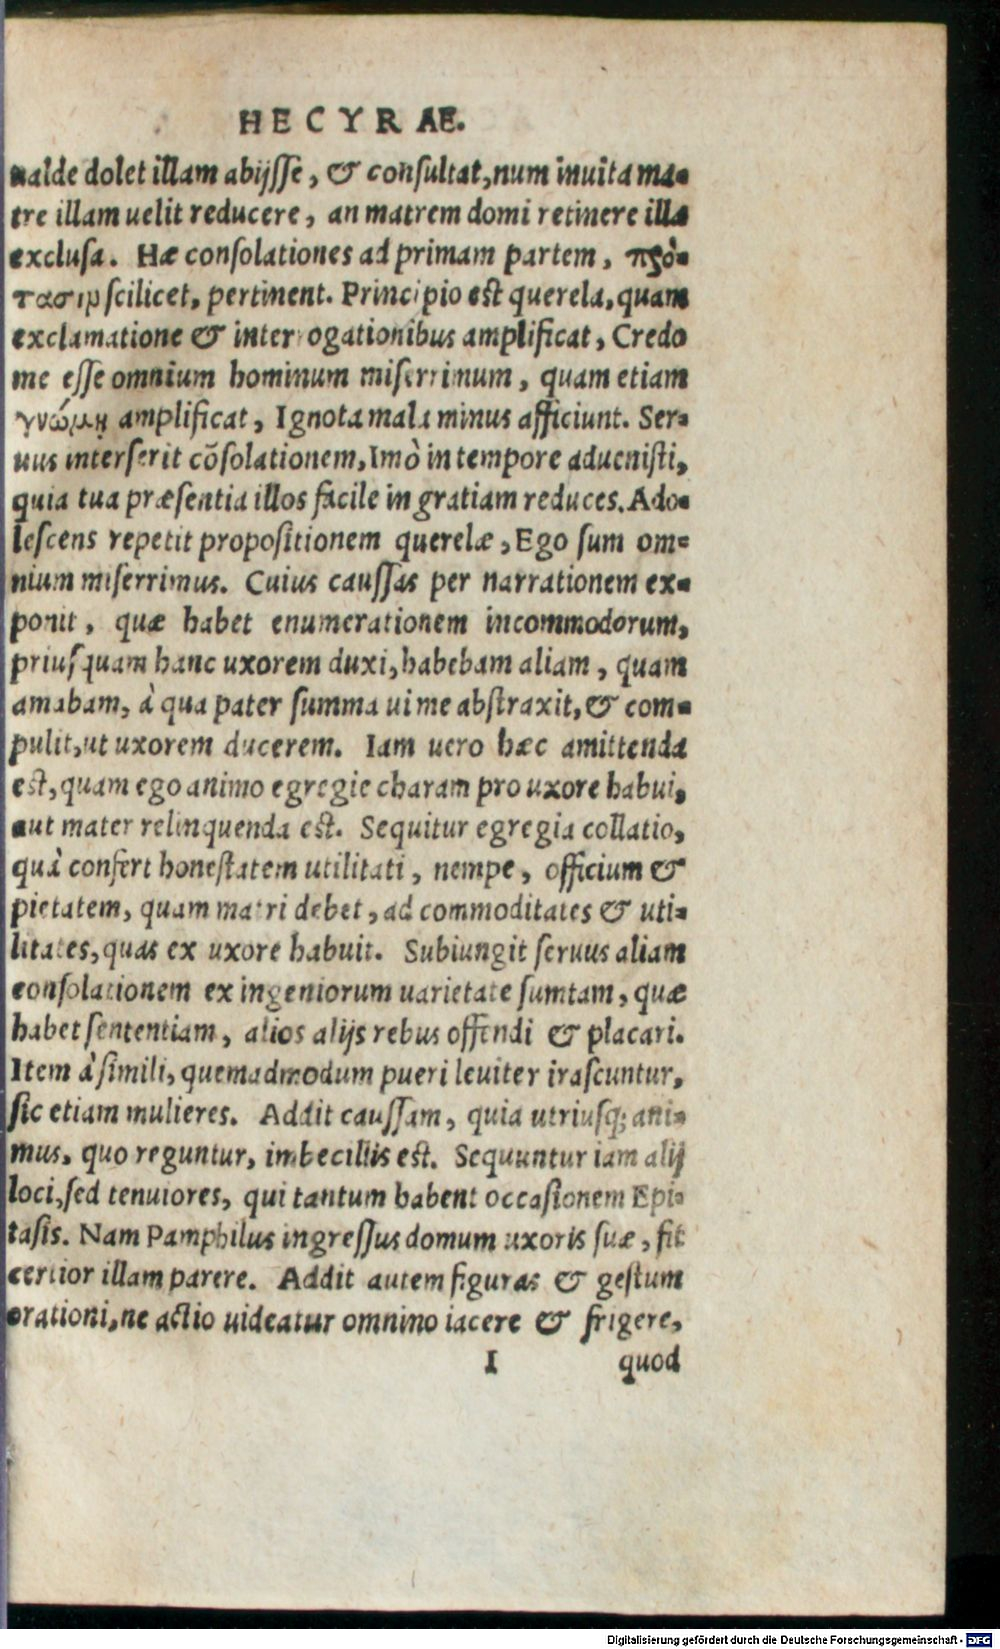 HECYRAE.
ualde dolet illam abijsse, & consultat, num inuita ma-
tre illam uelit reducere, an matrem domi retinere illa
exclusa. Hæ consolationes ad primam partem, πρό-
τασιμ scilicet, pertinent. Principio est querela, quam
exclamatione & interrogationibus amplificat, Credo
me esse omnium hominum miserrimum, quam etiam
γνώμῃ amplificat, Ignota mala minus afficiunt. Ser-
uus interserit cõsolationem, Imò in tempore aduenisti,
quia tua præsentia illos facile in gratiam reduces. Ado-
lescens repetit propositionem querelæ, Ego sum om-
nium miserrimus. Cuius caussas per narrationem ex-
ponit, quæ habet enumerationem incommodorum,
priusquam hanc uxorem duxi, habebam aliam, quam
amabam, à qua pater summa ui me abstraxit, & com-
pulit, ut uxorem ducerem. Iam uero hæc amittenda
est, quam ego animo egregie charam pro uxore habui,
aut mater relinquenda est. Sequitur egregia collatio,
quà confert honestatem utilitati, nempe, officium &
pietatem, quam matri debet, ad commoditates & uti-
litates, quas ex uxore habuit. Subiungit seruus aliam
consolationem ex ingeniorum uarietate sumtam, quæ
habet sententiam, alios alijs rebus offendi & placari.
Item à simili, quemadmodum pueri leuiter irascuntur,
sic etiam mulieres. Addit caussam, quia utriusq; ani-
mus, quo reguntur, imbecillis est. Sequuntur iam alij
loci, sed tenuiores, qui tantum habent occasionem Epi-
tasis. Nam Pamphilus ingressus domum uxoris suæ, fit
certior illam parere. Addit autem figuras & gestum
orationi, ne actio uideatur omnino iacere & frigere,
I quod
Digitalisierung gefördert durch die Deutsche Forschungsgemeinschaft - DFG